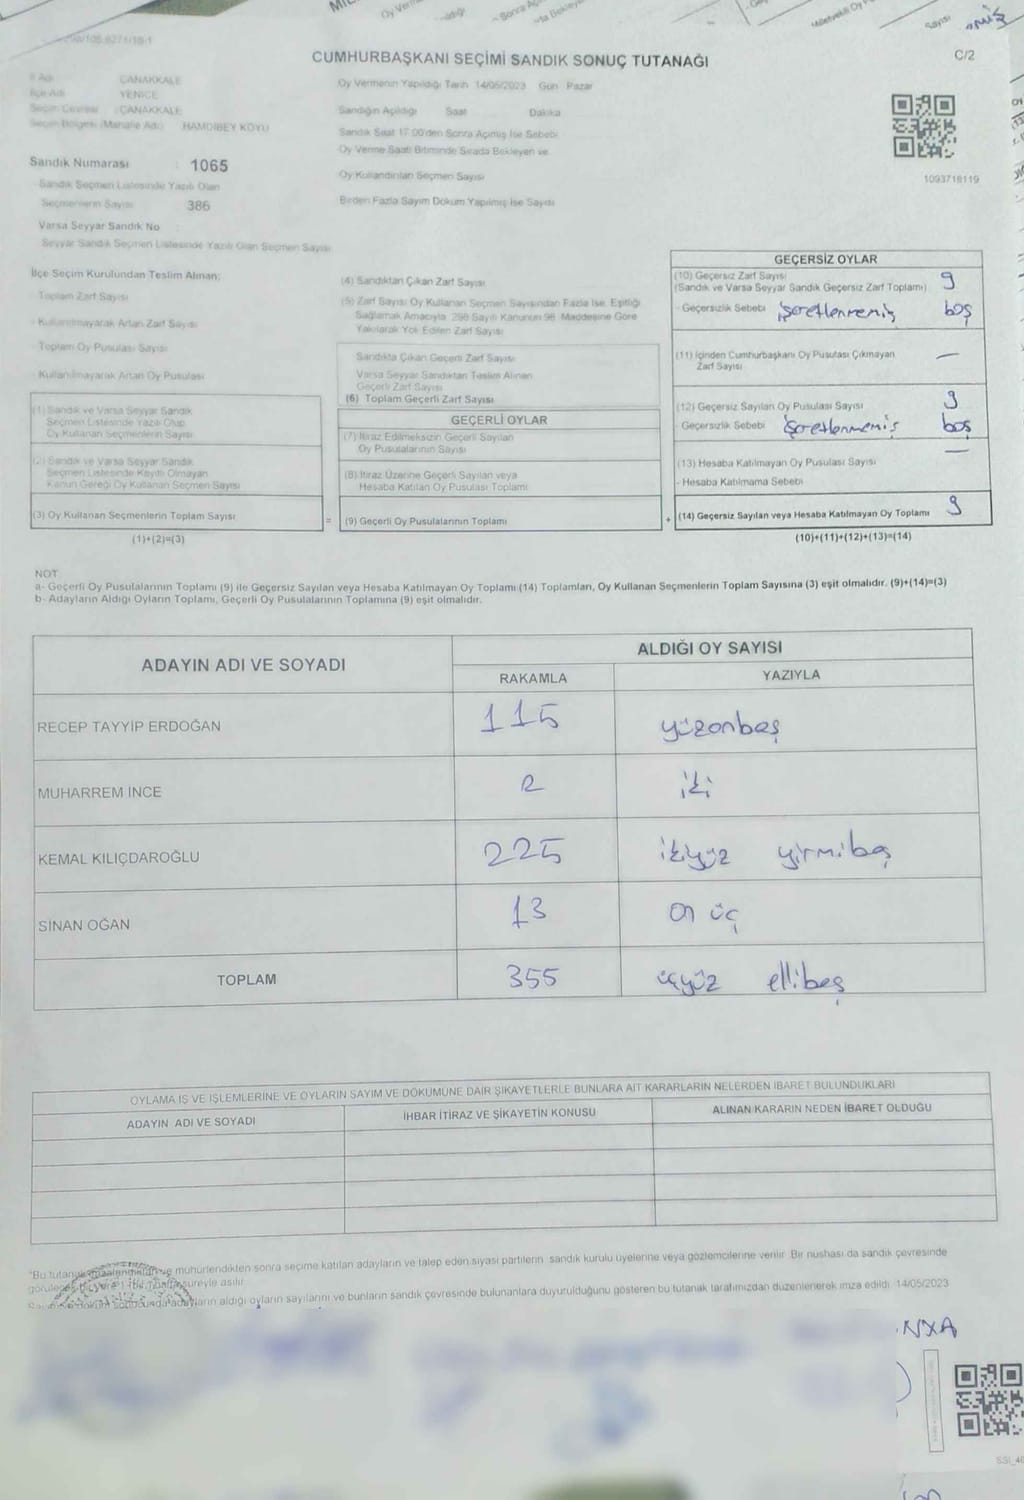 CUMHURBAŞKANI SEÇİMİ SANDIK SONUÇ TUTANAĞI
C/2
İl Adı : ÇANAKKALE
İlçe Adı : YENİCE
Seçim Çevresi : ÇANAKKALE
Seçim Bölgesi (Mahalle Adı) : HAMDİBEY KÖYÜ
Sandık Numarası : 1065
Sandık Seçmen Listesinde Yazılı Olan
Seçmenlerin Sayısı 386
Varsa Seyyar Sandık No
Seyyar Sandık Seçmen Listesinde Yazılı Olan Seçmen Sayısı
Oy Vermenin Yapıldığı Tarih 14/05/2023 Gün Pazar
Sandığın Açıldığı Saat Dakika
Sandık Saat 17:00'den Sonra Açılmış İse Sebebi
Oy Verme Saati Bitiminde Sırada Bekleyen ve
Oy Kullandırılan Seçmen Sayısı
Birden Fazla Sayım Döküm Yapılmış İse Sayısı
1093718119
İlçe Seçim Kurulundan Teslim Alınan;
Toplam Zarf Sayısı
- Kullanılmayarak Artan Zarf Sayısı
- Toplam Oy Pusulası Sayısı
- Kullanılmayarak Artan Oy Pusulası
(1) Sandık ve Varsa Seyyar Sandık
Seçmen Listesinde Yazılı Olup
Oy Kullanan Seçmenlerin Sayısı
(2) Sandık ve Varsa Seyyar Sandık
Seçmen Listesinde Kayıtlı Olmayan
Kanun Gereği Oy Kullanan Seçmen Sayısı
(3) Oy Kullanan Seçmenlerin Toplam Sayısı
(1)+(2)=(3)
(4) Sandıktan Çıkan Zarf Sayısı
(5) Zarf Sayısı Oy Kullanan Seçmen Sayısından Fazla İse, Eşitliği
Sağlamak Amacıyla, 298 Sayılı Kanunun 98. Maddesine Göre
Yakılarak Yok Edilen Zarf Sayısı
Sandıkta Çıkan Geçerli Zarf Sayısı
Varsa Seyyar Sandıktan Teslim Alınan
Geçerli Zarf Sayısı
(6) Toplam Geçerli Zarf Sayısı
GEÇERLİ OYLAR
(7) İtiraz Edilmeksizin Geçerli Sayılan
Oy Pusulalarının Sayısı
(8) İtiraz Üzerine Geçerli Sayılan veya
Hesaba Katılan Oy Pusulası Toplamı
= (9) Geçerli Oy Pusulalarının Toplamı +
GEÇERSİZ OYLAR
(10) Geçersiz Zarf Sayısı
(Sandık ve Varsa Seyyar Sandık Geçersiz Zarf Toplamı) 9
- Geçersizlik Sebebi işaretlenmemiş boş
(11) İçinden Cumhurbaşkanı Oy Pusulası Çıkmayan —
Zarf Sayısı
(12) Geçersiz Sayılan Oy Pusulası Sayısı 9
Geçersizlik Sebebi işaretlenmemiş boş
(13) Hesaba Katılmayan Oy Pusulası Sayısı —
- Hesaba Katılmama Sebebi
(14) Geçersiz Sayılan veya Hesaba Katılmayan Oy Toplamı 9
(10)+(11)+(12)+(13)=(14)
NOT
a- Geçerli Oy Pusulalarının Toplamı (9) ile Geçersiz Sayılan veya Hesaba Katılmayan Oy Toplamı (14) Toplamları, Oy Kullanan Seçmenlerin Toplam Sayısına (3) eşit olmalıdır. (9)+(14)=(3)
b- Adayların Aldığı Oyların Toplamı, Geçerli Oy Pusulalarının Toplamına (9) eşit olmalıdır.
ADAYIN ADI VE SOYADI ALDIĞI OY SAYISI
RAKAMLA YAZIYLA
RECEP TAYYİP ERDOĞAN 115 yüzonbeş
MUHARREM İNCE 2 iki
KEMAL KILIÇDAROĞLU 225 ikiyüz yirmibeş
SİNAN OĞAN 13 on üç
TOPLAM 355 üçyüz ellibeş
OYLAMA İŞ VE İŞLEMLERİNE VE OYLARIN SAYIM VE DÖKÜMÜNE DAİR ŞİKAYETLERLE BUNLARA AİT KARARLARIN NELERDEN İBARET BULUNDUKLARI
ADAYIN ADI VE SOYADI İHBAR İTİRAZ VE ŞİKAYETİN KONUSU ALINAN KARARIN NEDEN İBARET OLDUĞU
"Bu tutanak mühürlendikten sonra seçime katılan adayların ve talep eden siyasi partilerin sandık kurulu üyelerine veya gözlemcilerine verilir. Bir nüshası da sandık çevresinde
süreyle asılır.
adayların aldığı oyların sayılarını ve bunların sandık çevresinde bulunanlara duyurulduğunu gösteren bu tutanak tarafımızdan düzenlenerek imza edildi. 14/05/2023